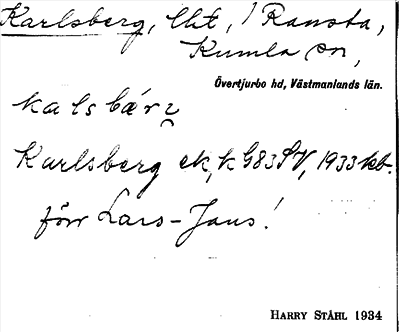 Karlsberg, lht, / Ransta,
Kumla sn,
Övertjurbo hd, Västmanlands län.
kalsbärɩ̯
Karlsberg ek, k G83SV, 1933 kb.
förr Lars-Jans!
HARRY STÅHL 1934